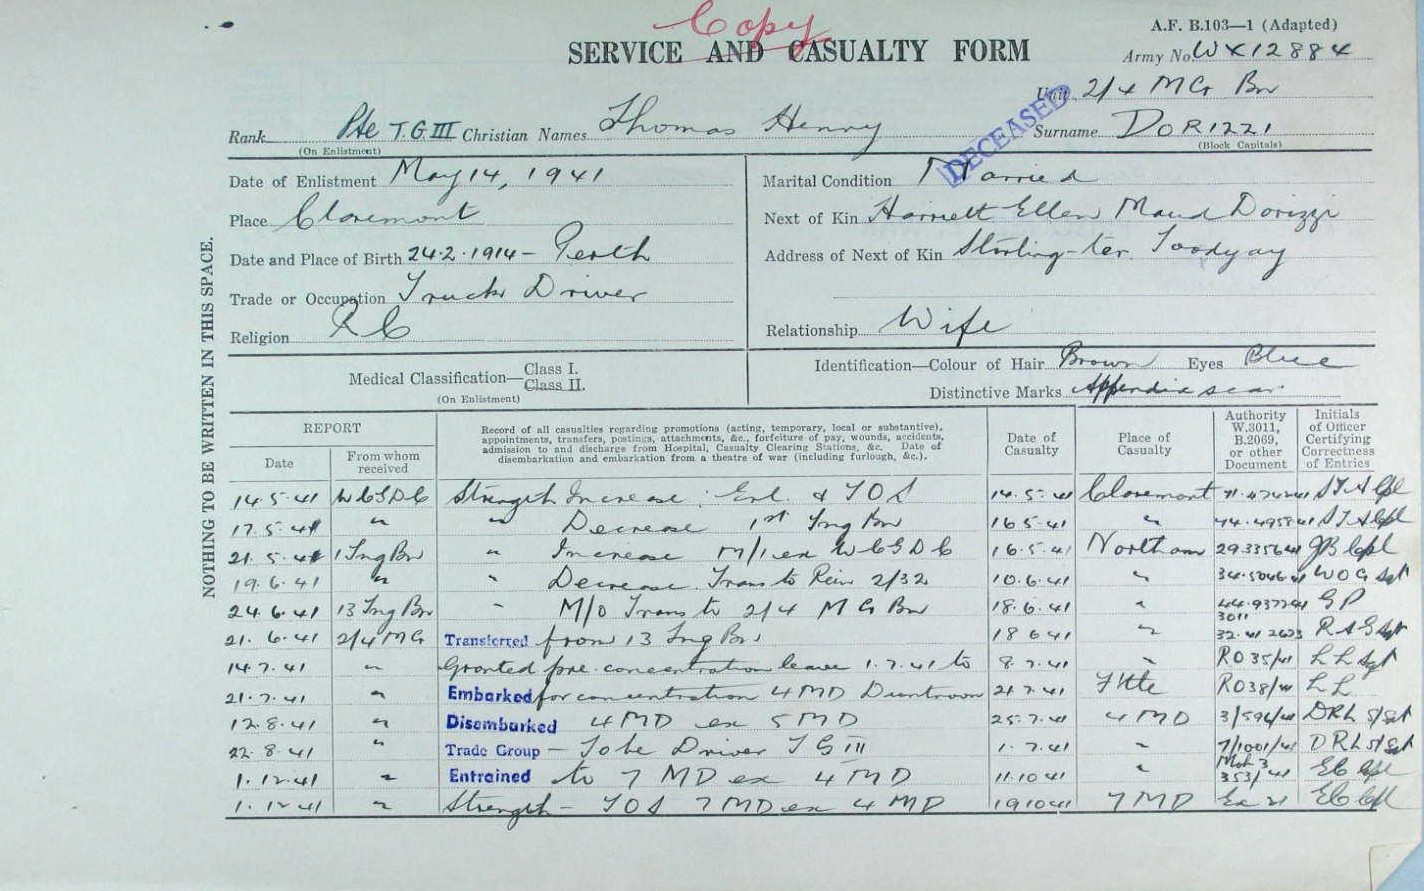 Copy
A.F. B.103—1 (Adapted)
SERVICE AND CASUALTY FORM
Army No. WX12884
Unit 2/4 M G Bn
DECEASED
Rank Pte T.G.III Christian Names Thomas Henry Surname DORIZZI
(On Enlistment) (Block Capitals)
Date of Enlistment May 14, 1941
Marital Condition Married
Place Claremont
Next of Kin Harriett Ellen Maud Dorizzi
Date and Place of Birth 24.2.1914 - Perth
Address of Next of Kin Stirling-ter. Toodyay
Trade or Occupation Truck Driver
Religion R C
Relationship Wife
NOTHING TO BE WRITTEN IN THIS SPACE.
Medical Classification—Class I.
Class II.
(On Enlistment)
Identification—Colour of Hair Brown Eyes Blue
Distinctive Marks Appendix scar
REPORT
Date
From whom received
Record of all casualties regarding promotions (acting, temporary, local or substantive),
appointments, transfers, postings, attachments, &c., forfeiture of pay, wounds, accidents,
admission to and discharge from Hospital, Casualty Clearing Stations, &c. Date of
disembarkation and embarkation from a theatre of war (including furlough, &c.).
Date of Casualty
Place of Casualty
Authority W.3011, B.2069, or other Document
Initials of Officer Certifying Correctness of Entries
14.5.41 W C G D C Strength Increase: Enl. & T O S 14.5.41 Claremont
17.5.41 " " Decrease 1st Tng Bn 16 5.41 "
21.5.41 1 Tng Bn " Increase M/I ex W C G D C 16.5.41 Northam
19.6.41 " " Decrease Trans to Rein 2/32 10.6.41 "
24.6.41 13 Tng Bn " M/O Trans to 2/4 M G Bn 18.6.41 " G P
21.6.41 2/4 M G Transferred from 13 Tng Bn 18 6 41 " 3011
14.7.41 " Granted pre. concentration leave 1.7.41 to 8.7.41 " RO 35/41 L L Sgt
21.7.41 " Embarked for concentration 4 MD Duntroon 21.7.41 F'tle L L
12.8.41 " Disembarked 4 MD ex 5 MD 25.7.41 4 MD DRL S/Sgt
22.8.41 " Trade Group - To be Driver T G III 1.7.41 " DRL S/Sgt
1.12.41 " Entrained to 7 MD ex 4 MD 11.10 41 "
1.12 41 " Strength - T O S 7 MD ex 4 MD 19 10 41 7 MD